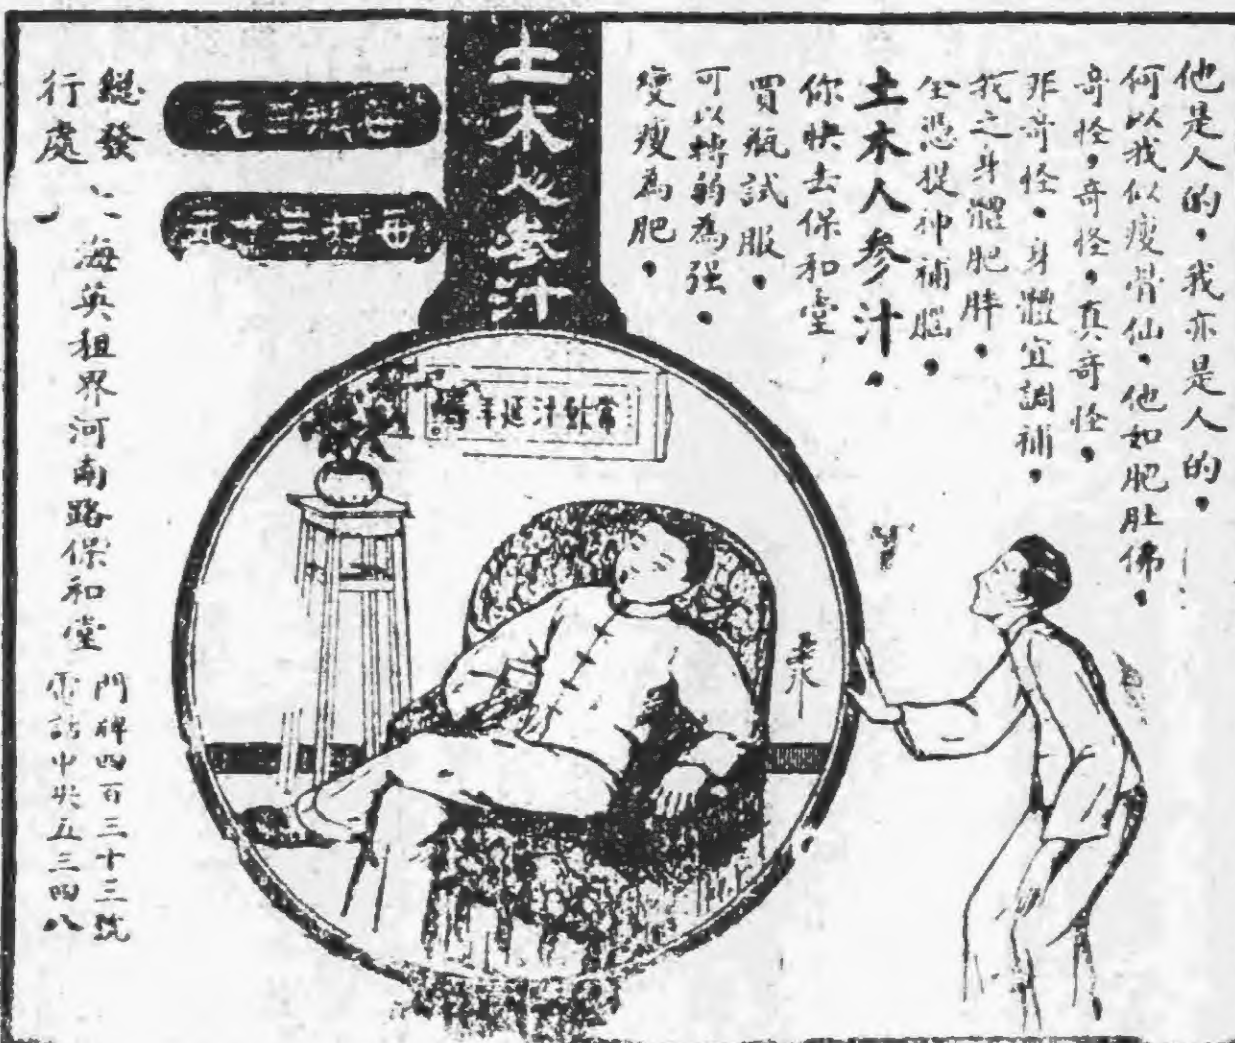 他是人的，我亦是人的，
何以我似瘦骨仙，他如肥肚佛，
奇怪，奇怪，真奇怪，
非奇怪，身體宜調補，
我之身體肥胖，
全憑提神補腦，
土木人參汁，
你快去保和堂，
買瓶試服，
可以轉弱為强，
變瘦為肥，
土木人參汁
每瓶三元
每打三十元
常飲汁延年
總發行處
海英租界河南路保和堂
門牌四百三十三號
電話中央五三四八